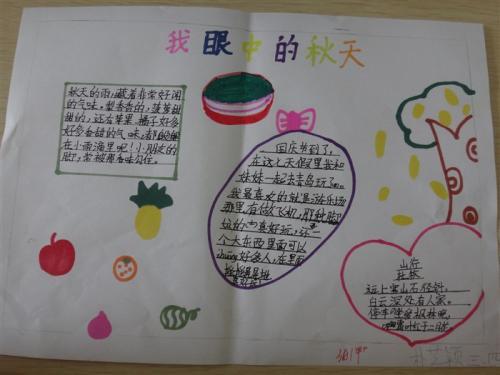 我眼中的秋天
秋天的雨,藏着非常好闻
的气味。梨香香的,菠萝甜
甜的,还有苹果、橘子,好多
好多香甜的气味,都躲
在小雨滴里呢!小朋友的
脚,常被那香味勾住。
国庆节到了,
在这七天假里我和
妹妹一起去青岛玩了。
我最喜欢的就是游乐场
那里有做飞机,
好玩,还
大东西里面可以
好多人,在里面
山行
杜牧
远上寒山石径斜,
白云深处有人家。
停车坐爱枫林晚,
霜叶红于二月花。